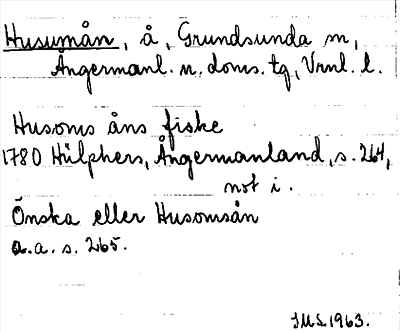 Husumån, å, Grundsunda sn,
Ångermanl. n. doms. tg, Vrnl. l.
Husoms åns fiske
1780 Hülphers, Ångermanland, s. 264,
not i.
Önska eller Husomsån
a.a. s. 265.
JMS.1963.